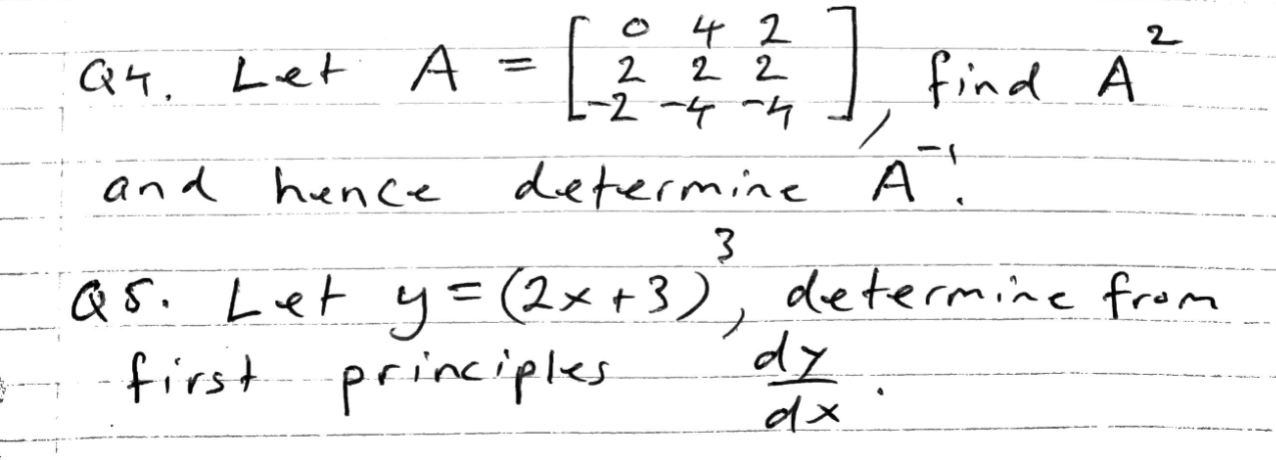 Q4. Let A = [ 0 4 2
2 2 2
-2 -4 -4 ], find A²
and hence determine A⁻¹.
Q5. Let y = (2x+3)³, determine from
first principles dy/dx.